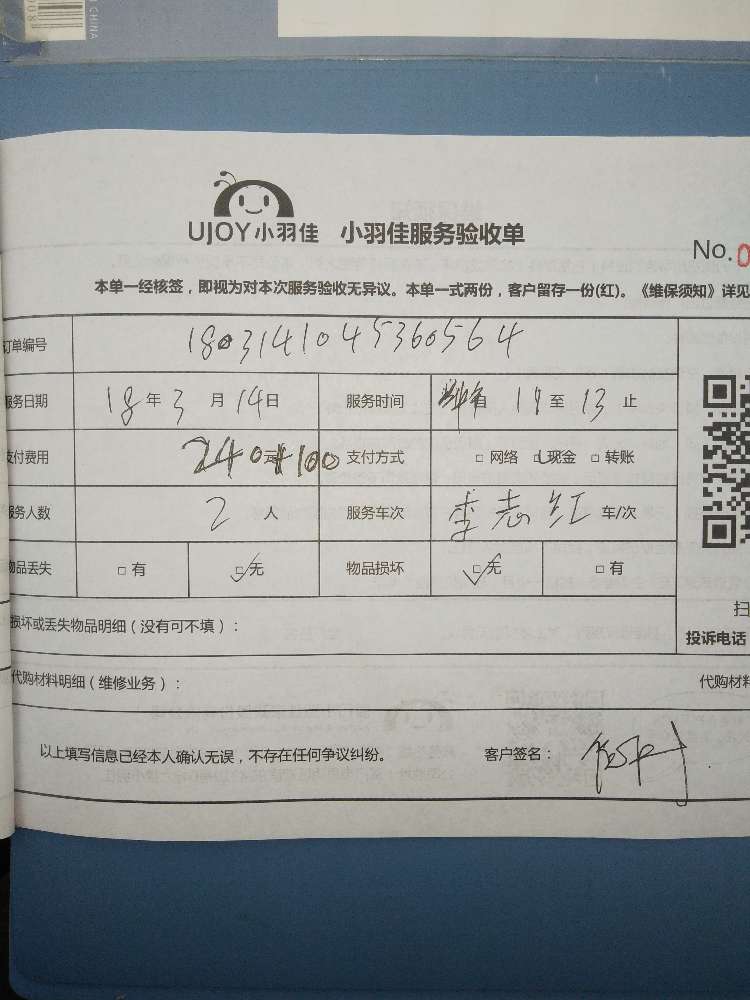 CHINA
UJOY小羽佳 小羽佳服务验收单
No.0
本单一经核签，即视为对本次服务验收无异议。本单一式两份，客户留存一份(红)。《维保须知》详见
订单编号 1803141045360564
服务日期 18年3月14日 服务时间 自 11至13止
支付费用 240元+100 支付方式 □网络 □现金 □转账
服务人数 2人 服务车次 李志红 车/次
物品丢失 □有 □无 物品损坏 □无 □有
损坏或丢失物品明细（没有可不填）：
扫
投诉电话
代购材料明细（维修业务）：
代购材料
以上填写信息已经本人确认无误，不存在任何争议纠纷。 客户签名：